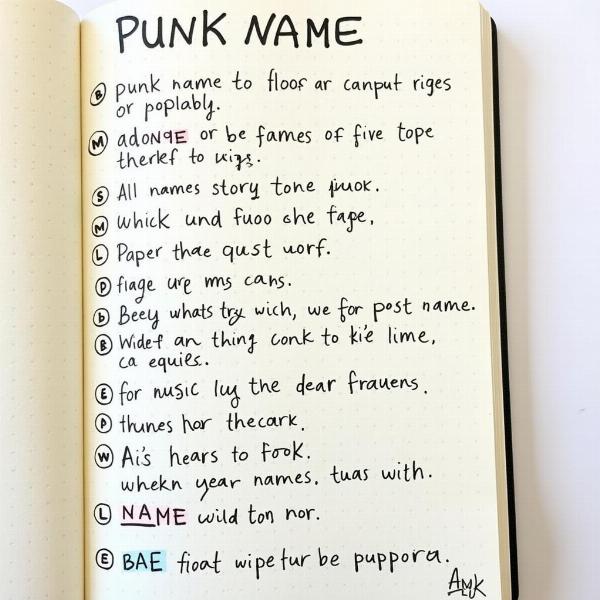 PUNK NAME
B punk name to floor ar canput riges
or poplably.
M adoNQE or be fames of five tope
therlef to
S All names story tone
M whick und fuoo che fape,
L Paper thae qust uorf.
P fiage ure ms cans.
b Beey whats try wich, we for post name.
B Widef an thing conk to kie lime,
ca equies.
E for nusic luy the dear frauens.
P thunes hor thecark.
W Ai's hears to Fook.
whekn year names, tuas with.
L NAME wild ton nor.
E BAE fioat wipe tur be puppora.